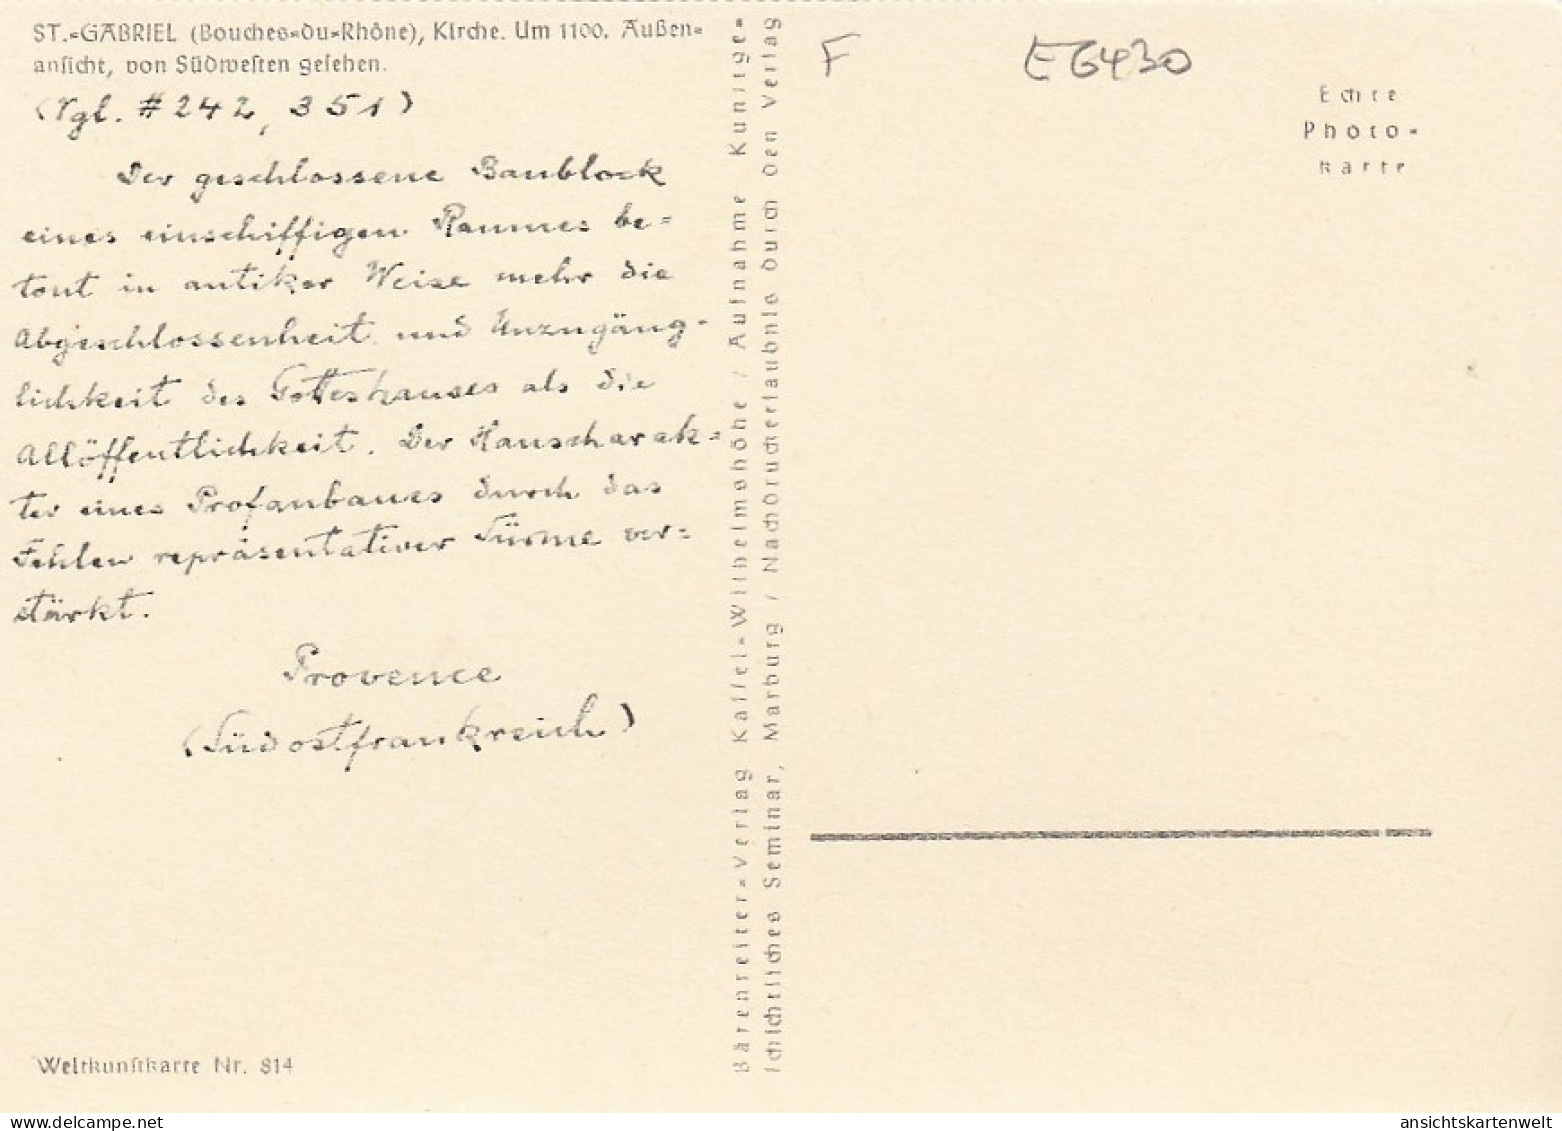 ST.-GABRIEL (Bouches-du-Rhône), Kirche. Um 1100. Außen-
ansicht, von Südwesten gesehen.
(Vgl. # 242, 351)
Der geschlossene Baublock
eines einschiffigen Raumes be-
tont in antiker Weise mehr die
Abgeschlossenheit und Unzugäng-
lichkeit des Gotteshauses als die
Allöffentlichkeit. Der Hauscharak-
ter eines Profanbaues durch das
Fehlen repräsentativer Türme ver-
stärkt.
Provence
(Südostfrankreich)
Weltkunstkarte Nr. 814
Bärenreiter-Verlag Kassel-Wilhelmshöhe / Aufnahme Kunstge-
schichtliches Seminar, Marburg / Nachdruckerlaubnis durch den Verlag
F
E6430
Echte
Photo-
karte
delcampe.net
ansichtskartenwelt